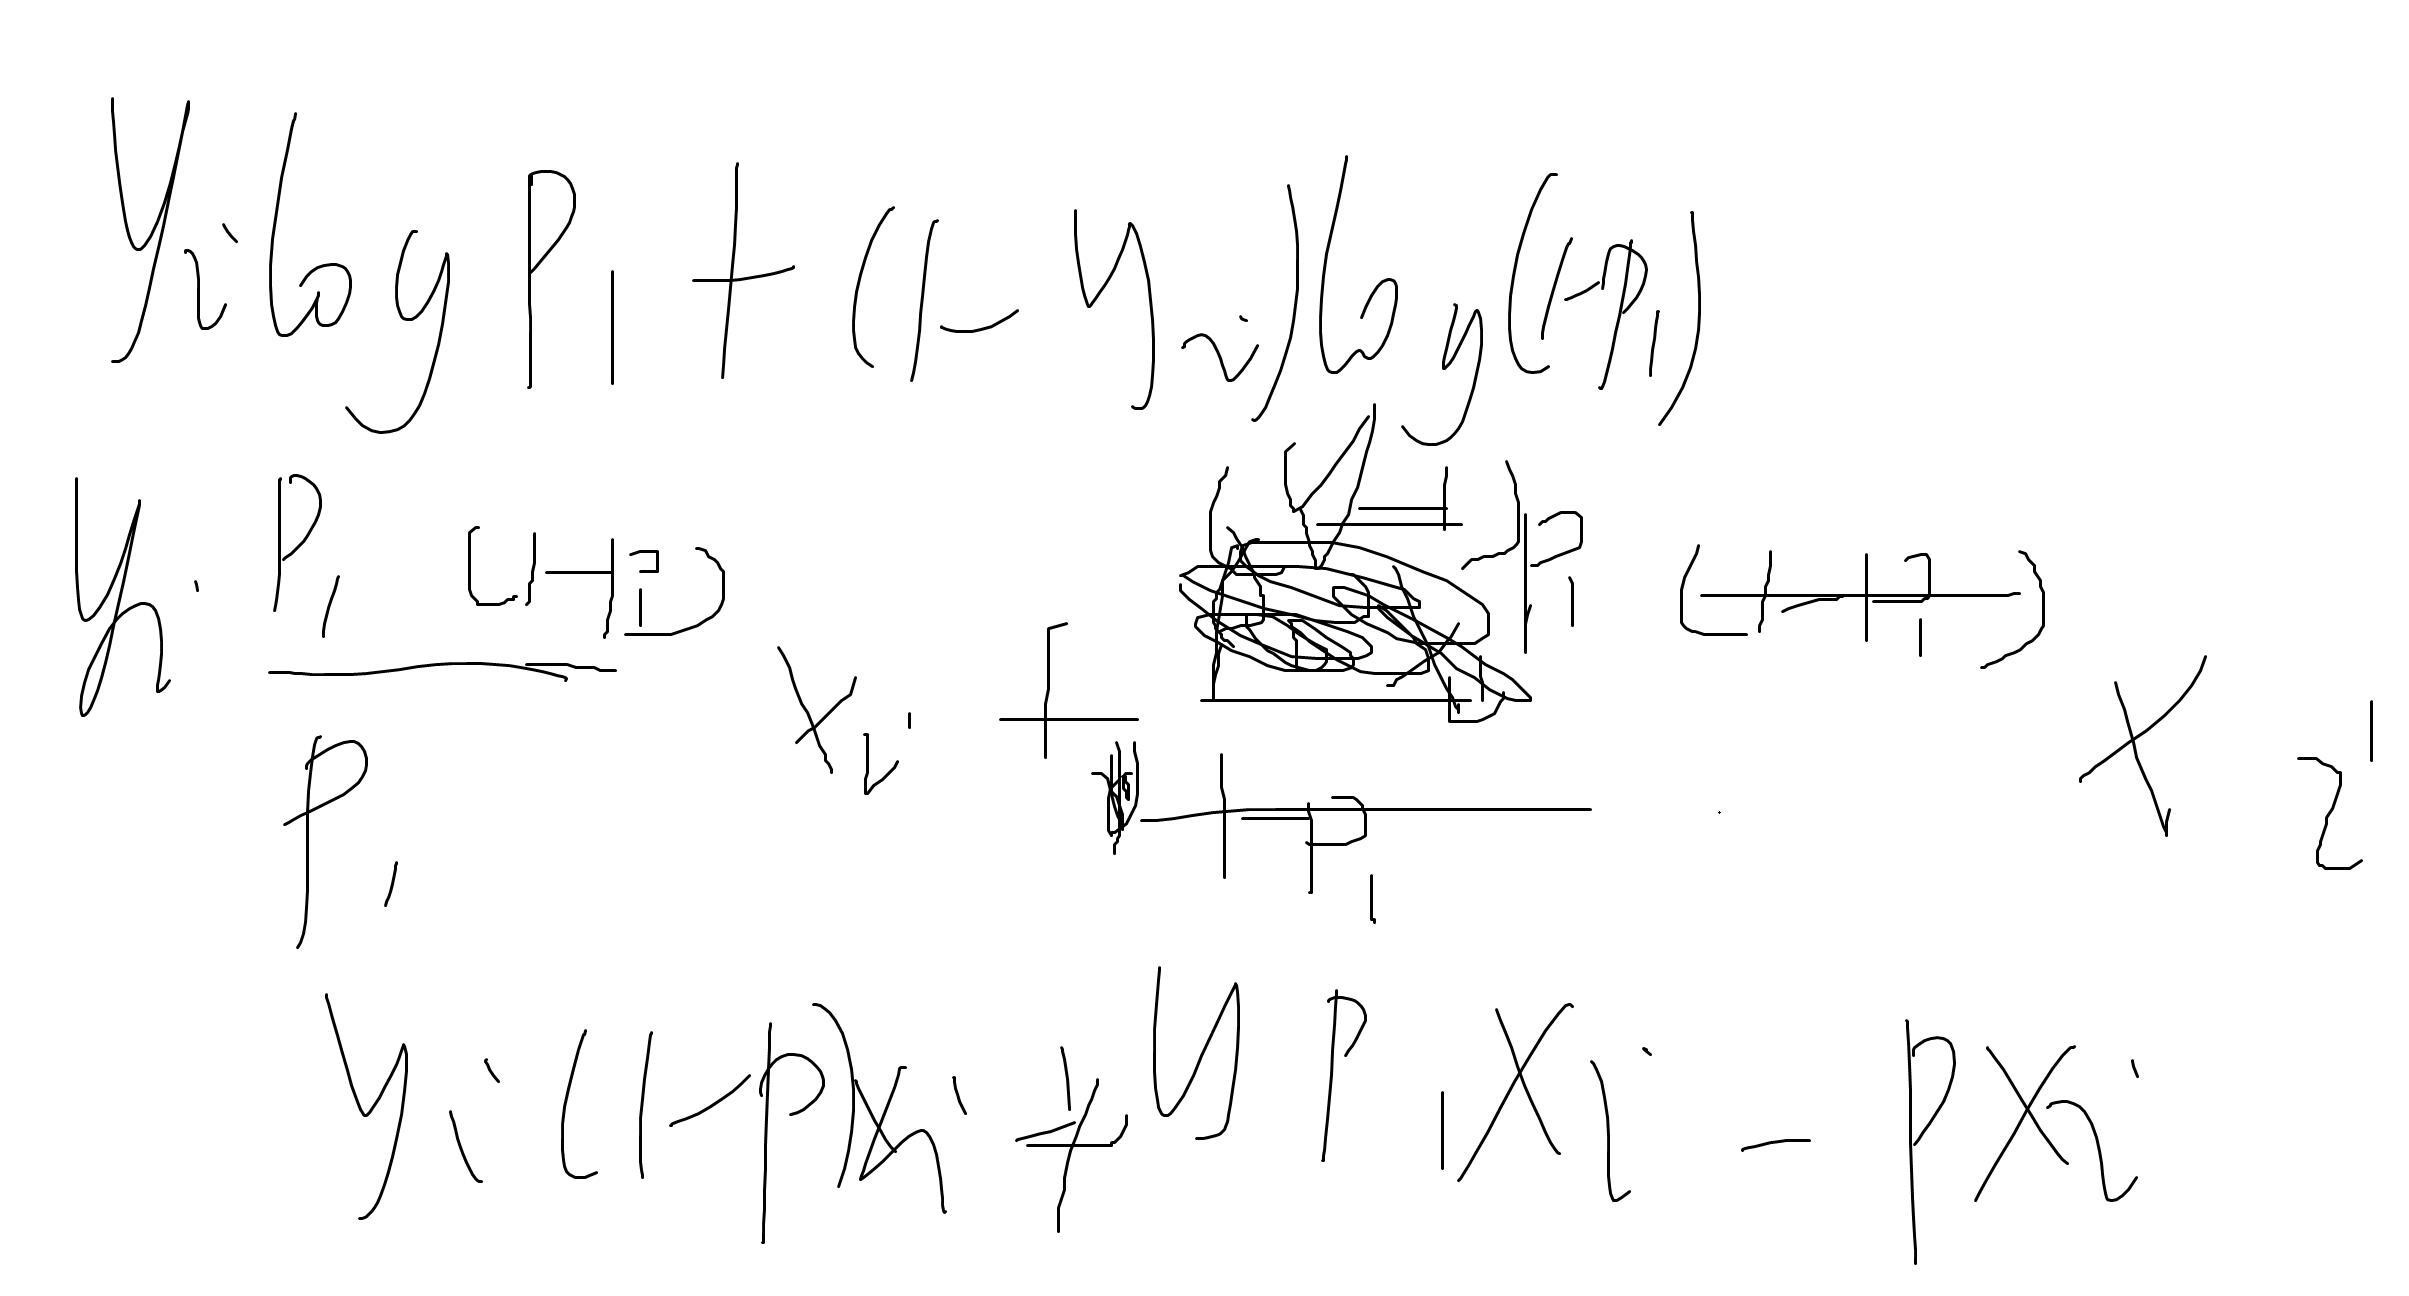 yi log P1 + (1 - yi) log(1-P1)
yi P1 (1-P1) / P1 xi + (y-1) P1 (1-P1) / 1-P1 xi
yi (1-p) xi + y P1 xi - p xi